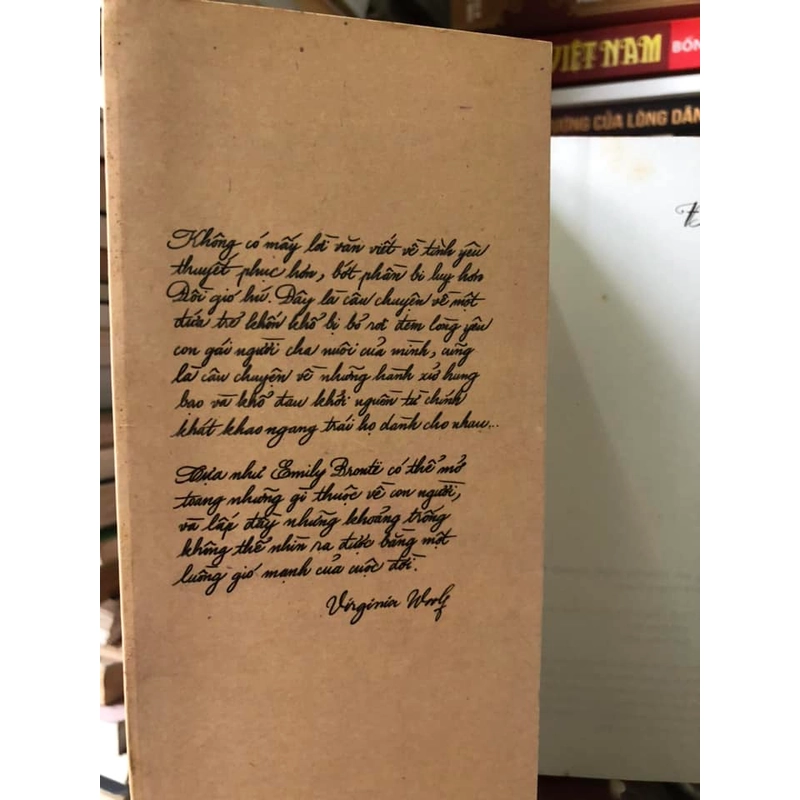 VIỆT NAM BỐN
ƯƠNG CỦA LÒNG DÂN
Không có mấy lời văn viết về tình yêu
thuyết phục hơn, bớt phần bi lụy hơn
Đồi gió hú. Đây là câu chuyện về một
đứa trẻ khốn khổ bị bỏ rơi đem lòng yêu
con gái người cha nuôi của mình, cũng
là câu chuyện về những hành xử hung
bạo và khổ đau khởi nguồn từ chính
khát khao ngang trái họ dành cho nhau...
Tựa như Emily Brontë có thể mở
toang những gì thuộc về con người,
và lấp đầy những khoảng trống
không thể nhìn ra được bằng một
luồng gió mạnh của cuộc đời.
Virginia Woolf